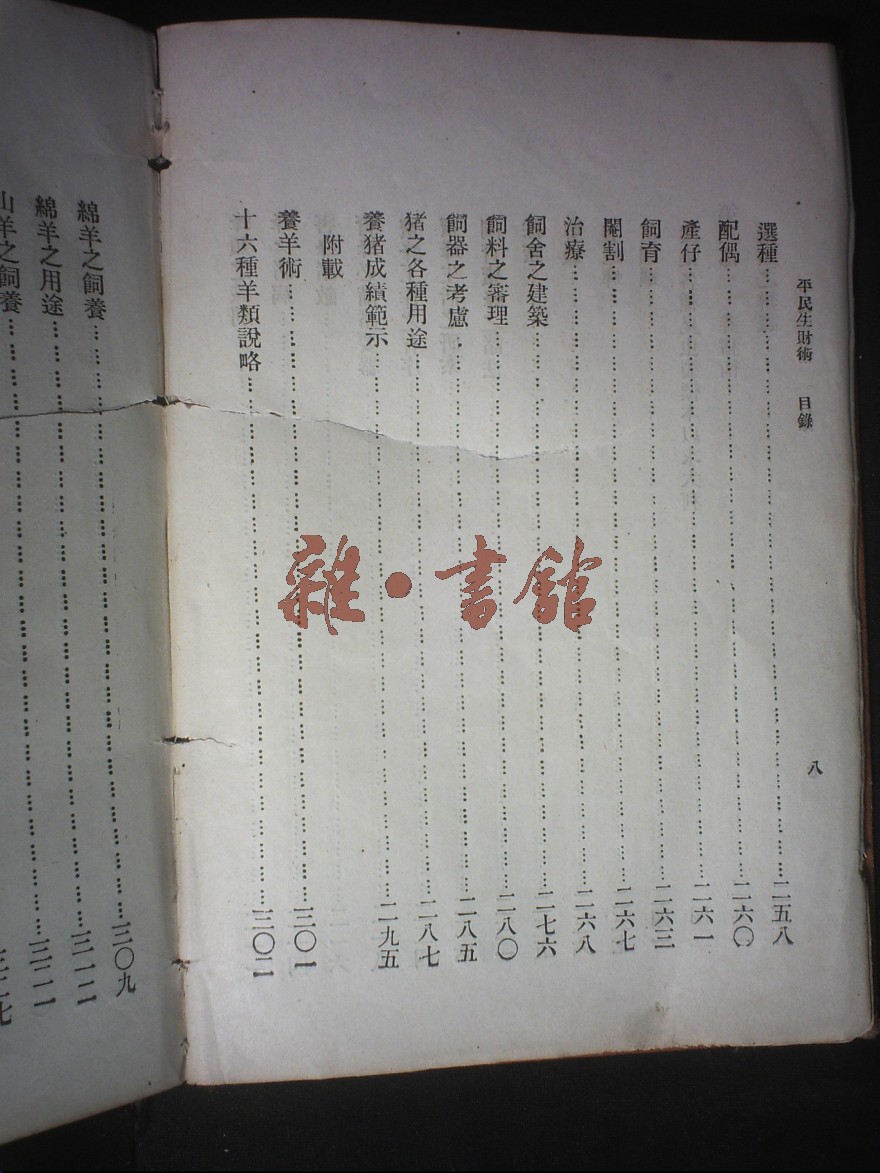 平民生財術 目錄 八
選種……二五八
配偶……二六〇
產仔……二六一
飼育……二六三
閹割……二六七
治療……二六八
飼舍之建築……二七六
飼料之審理……二八〇
飼器之考慮……二八五
猪之各種用途……二八七
養猪成績範示……二九五
附載
養羊術……三〇一
十六種羊類說略……三〇二
綿羊之飼養……三〇九
綿羊之用途……三一二
山羊之飼養……
雜·書館